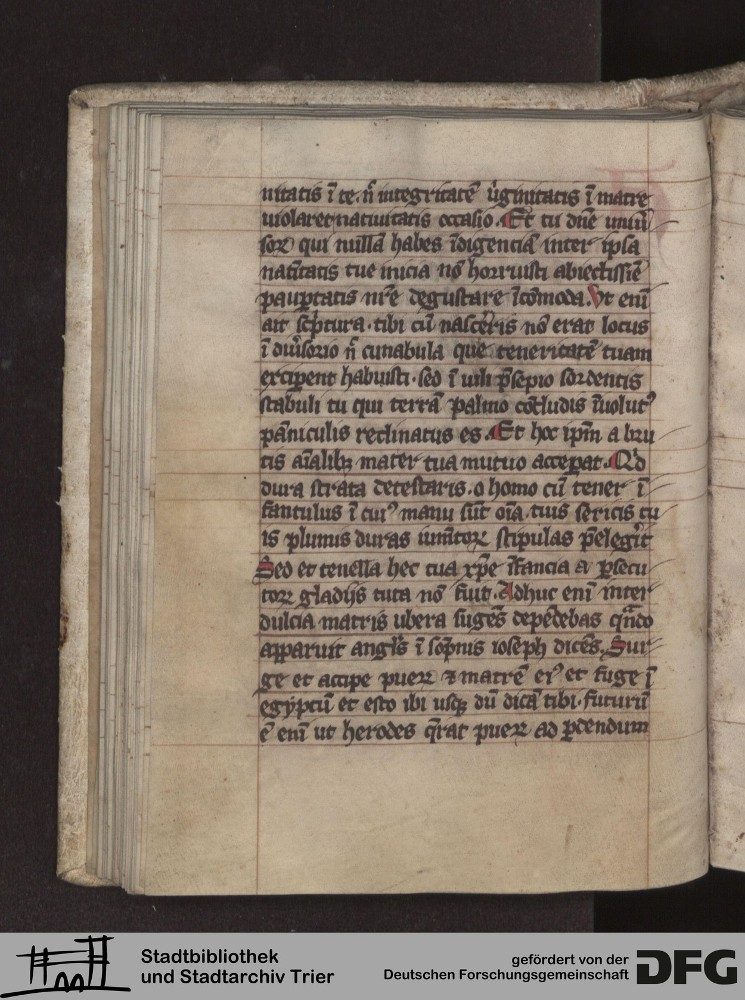 uitatis ī te. n̄ integritatē ùginitatis ī matre
uiolaret natiuitatis occasio. Et tu dn̄e
soꝝ qui nullā habes īdigenciā inter ipsa
tue inicia nō horruisti abiectissīe
paup̱tatis nr̄e degustare īcōmoda. Vt enī
ait sc̓ptura. tibi cū nasceris nō erat locus
ī diu̓sorio n̄ cunabula que teneritatē tuam
excip̱ent habuisti. sed ī uili p̄sepio sordentis
stabuli tu qui terrā palmo cōcludis īuolutꝰ
pāniculis reclinatus es. Et hoc ip̄m a bru
tis aīalibꝫ mater tua mutuo accep̱at. Q̓d
dura strata detestaris. o homo cū tener ī
fantulus ī cuiꝰ manu sūt oīa. tuis sericis tu
is plumis duras iumētoꝝ stipulas p̄elegit
Sed et tenella hec tua xp̄e īfancia a p̱secu
toꝝ gladijs tuta nō fuit. Adhuc enī inter
dulcia matris ubera sugēs depēdebas qn̄do
apparuit angl̓s ī sōpnis ioseph dicēs. Sur
ge et accipe pueꝝ ⁊ matrē eiꝰ et fuge ī
egyptū et esto ibi usqꝫ dū dicā tibi. futurū
ē enī ut herodes q̄rat pueꝝ ad p̱dendum
Stadtbibliothek
und Stadtarchiv Trier
gefördert von der
Deutschen Forschungsgemeinschaft
DFG